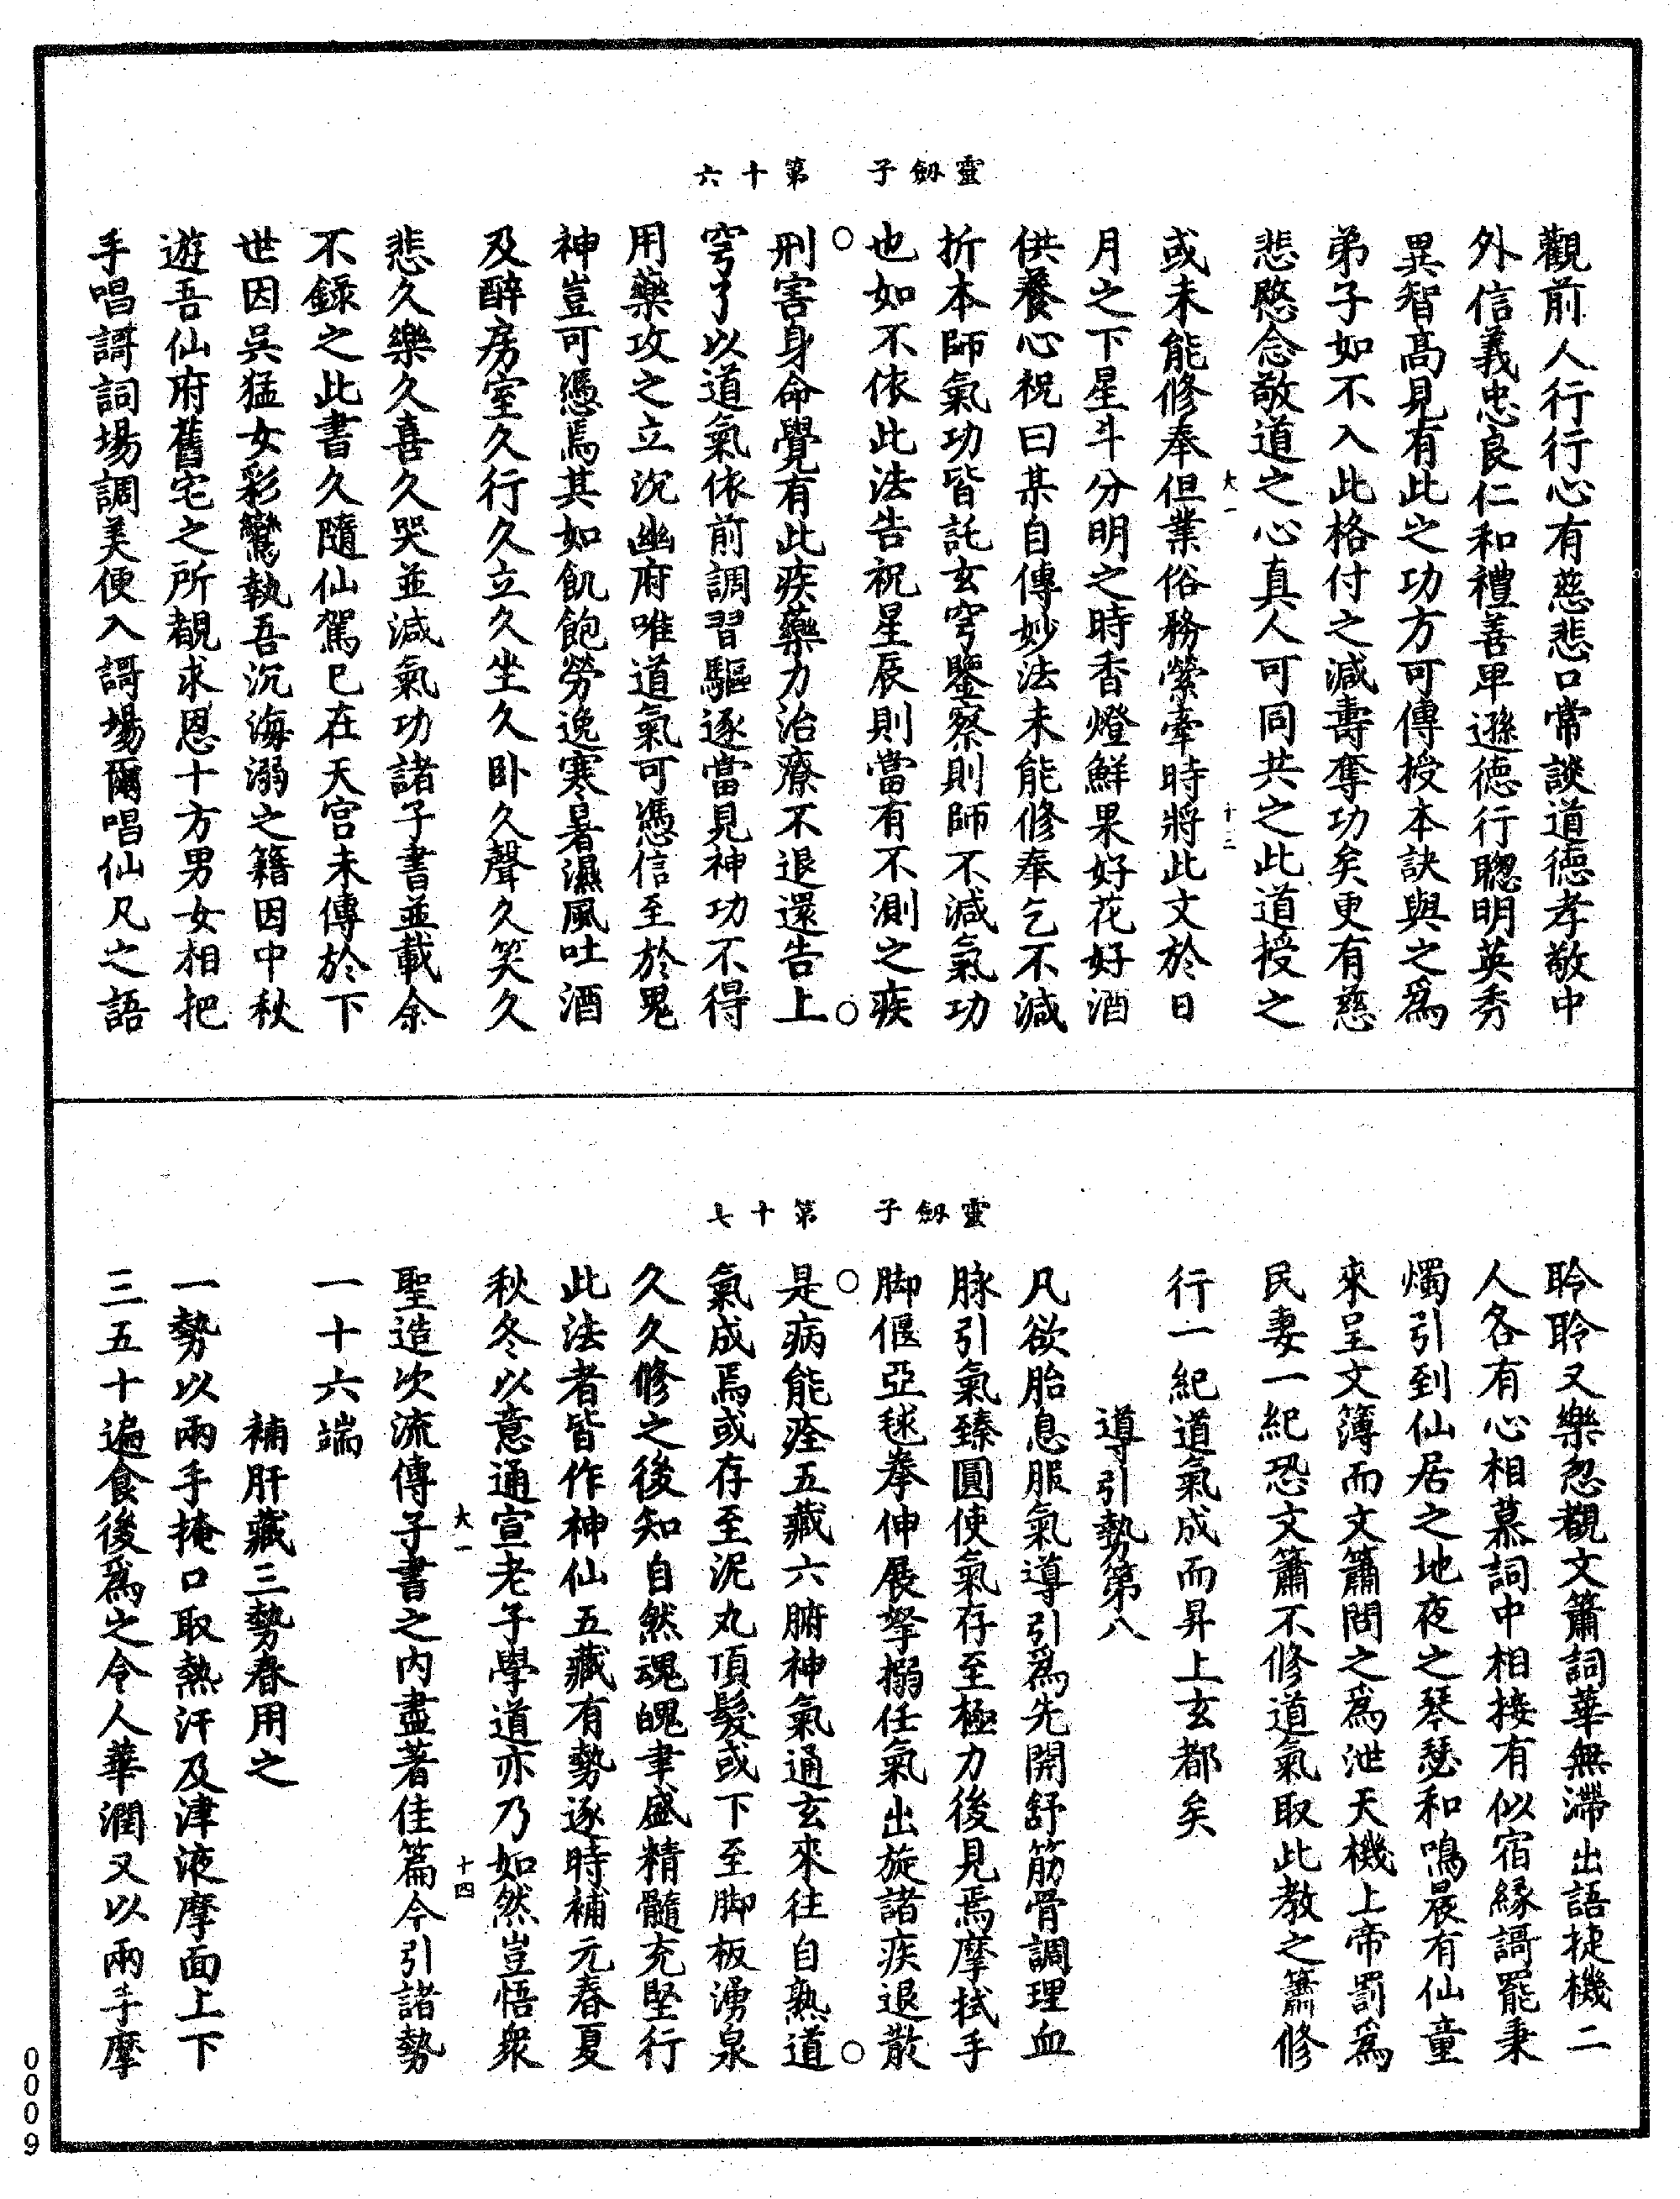 靈劒子　第十六
觀前人行行心有慈悲口常談道德孝敬中
外信義忠良仁和禮善卑遜德行聦明英秀
異智高見有此之功方可傳授本訣與之爲
弟子如不入此格付之減壽奪功矣更有慈
悲愍念敬道之心真人可同共之此道授之
或未能修奉但業俗務縈牽時將此文於日
大一　十三
月之下星斗分明之時香燈鮮果好花好酒
供養心祝曰某自傳妙法未能修奉乞不減
折本師氣功皆託玄穹鑒察則師不減氣功
也如不依此法告祝星辰則當有不測之疾
刑害身命覺有此疾藥力治療不退還告上
穹了以道氣依前調習驅逐當見神功不得
用藥攻之立沉幽府唯道氣可憑信至於鬼
神豈可憑焉其如飢飽勞逸寒暑濕風吐酒
及醉房室久行久立久坐久卧久聲久笑久
悲久樂久喜久哭並減氣功諸子書並載余
不録之此書久隨仙駕已在天宫未傳於下
世因吳猛女彩鸞執吾沉海溺之籍因中秋
遊吾仙府舊宅之所覩求恩十方男女相把
手唱謌詞場調美便入謌場爾唱仙凡之語
靈劒子　第十七
聆聆又樂忽覩文簫詞華無滯出語捷機二
人各有心相慕詞中相接有似宿緣謌罷秉
燭引到仙居之地夜之琴瑟和鳴晨有仙童
來呈文簿而文簫問之爲泄天機上帝罰爲
民妻一紀恐文簫不修道氣取此教之簫修
行一紀道氣成而昇上玄都矣
導引勢第八
凡欲胎息服氣導引爲先開舒筋骨調理血
脉引氣臻圓使氣存至極力後見焉摩拭手
脚偃亞毬拳伸展拏搦任氣出旋諸疾退散
是病能痊五藏六腑神氣通玄來往自熟道
氣成焉或存至泥丸頂髮或下至脚板湧泉
久久修之後知自然魂魄聿盛精髓充堅行
此法者皆作神仙五藏有勢逐時補元春夏
秋冬以意通宣老子學道亦乃如然豈悟衆
大一　十四
聖造次流傳子書之内盡著佳篇今引諸勢
一十六端
補肝藏三勢春用之
一勢以兩手掩口取熱汗及津液摩面上下
三五十遍食後爲之令人華潤又以兩手摩
00009